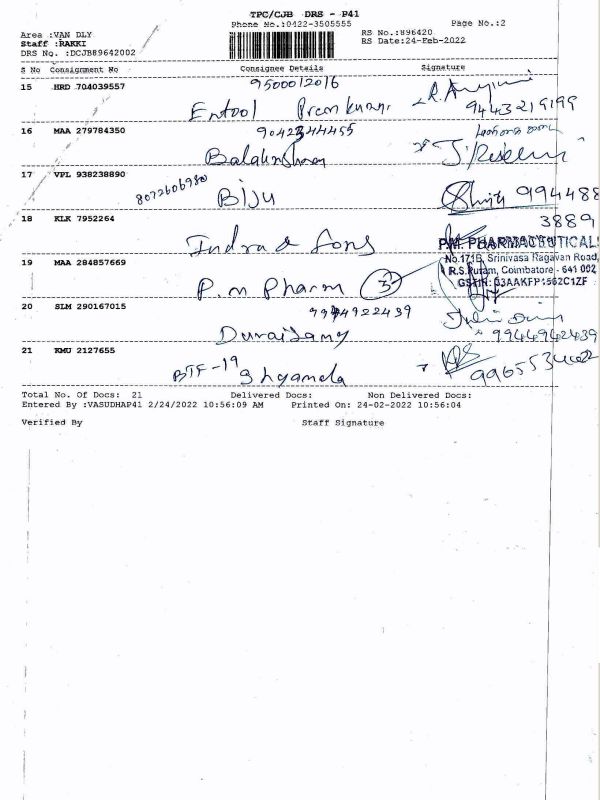 TPC/CJB DRS - P41
Phone No.:0422-3505555
Page No.:2
Area :VAN DLY
RS No.:896420
Staff :RAKKI
RS Date:24-Feb-2022
DRS No. :DCJB89642002
S No Consignment No Consignee Details Signature
15 HRD 704039557 9500012016
Entool Premkumar 9443219199
16 MAA 279784350 9042344455
Balakrishnan
17 VPL 938238890 8072606980 Biju 994488
3889
18 KLK 7952264
Indra & Sons
P.M. PHARMACEUTICAL
No.171B, Srinivasa Ragavan Road,
19 MAA 284857669
R.S.Puram, Coimbatore - 641 002
P.m Pharm 3
20 SLM 290167015 9944922439
Duraisamy 9944942439
21 KMU 2127655
BTF-19 Shyamala
Total No. Of Docs: 21 Delivered Docs: Non Delivered Docs:
Entered By :VASUDHAP41 2/24/2022 10:56:09 AM Printed On: 24-02-2022 10:56:04
Verified By Staff Signature